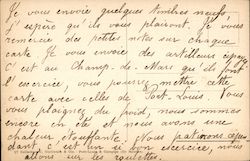 Je vous envoie quelques timbres neufs
J'espère qu'ils vous plairont. Je vous
remercie des petites notes sur chaque
carte Je vous envoie des artilleurs
C'est au Champ-de-Mars qu'ils font
l'exercice, vous pourrez mettre cette
carte avec celles de Port-Louis Vous
vous plaignez du froid, nous sommes
encore en été et nous avons une
chaleur étouffante. Nous patinons
dant, c'est un si bon exercice, nous
allons sur les roulettes.